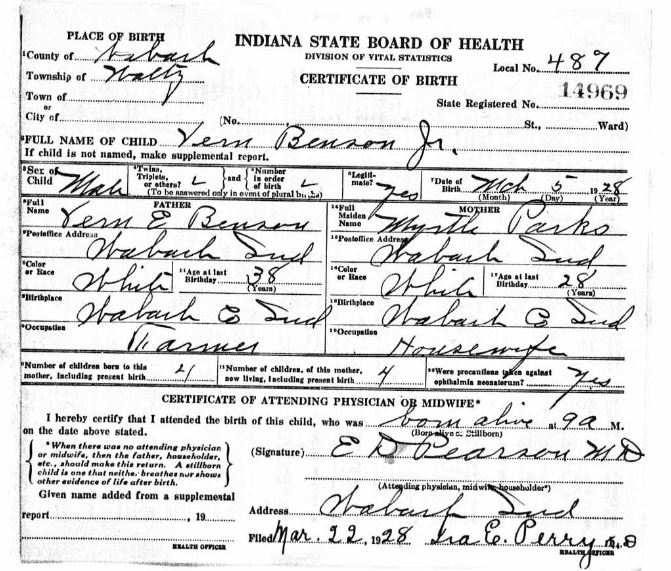 PLACE OF BIRTH
INDIANA STATE BOARD OF HEALTH
DIVISION OF VITAL STATISTICS
CERTIFICATE OF BIRTH
¹County of Wabash
Local No. 487
Township of Waltz
14969
Town of
or
State Registered No.
City of (No. St., Ward)
²FULL NAME OF CHILD Vern Benson Jr.
If child is not named, make supplemental report.
³Sex of Child Male
⁴Twins, Triplets, or others? and ⁵Number in order of birth
(To be answered only in event of plural births)
⁶Legitimate? Yes
⁷Date of Birth Mch 5 1928
(Month) (Day) (Year)
FATHER
⁸Full Name Vern E Benson
MOTHER
¹⁴Full Maiden Name Myrtle Parks
⁹Postoffice Address Wabash Ind
¹⁵Postoffice Address Wabash Ind
¹⁰Color or Race White
¹¹Age at last Birthday 38 (Years)
¹⁶Color or Race White
¹⁷Age at last Birthday 28 (Years)
Birthplace Wabash Co Ind
¹⁸Birthplace Wabash Co Ind
Occupation Farmer
¹⁹Occupation Housewife
Number of children born to this mother, including present birth 4
Number of children, of this mother, now living, including present birth 4
Were precautions taken against ophthalmia neonatorum? Yes
CERTIFICATE OF ATTENDING PHYSICIAN OR MIDWIFE*
I hereby certify that I attended the birth of this child, who was born alive at 9a M.
on the date above stated.
(Born alive or Stillborn)
*When there was no attending physician
or midwife, then the father, householder,
etc., should make this return. A stillborn
child is one that neither breathes nor shows
other evidence of life after birth.
(Signature) E D Pearson M D
(Attending physician, midwife, householder*)
Given name added from a supplemental
report , 19
HEALTH OFFICER
Address Wabash Ind
Filed Mar. 22, 1928 Ira E. Perry M.D
HEALTH OFFICER